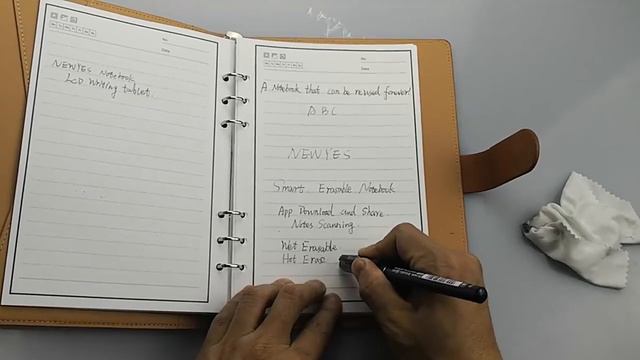 NEWYES Notebook
LCD Writing tablet.
No:
Date:
No:
Date:
A Notebook that can be reused forever!
A B C
NEWYES
Smart Erasable Notebook
App Download and Share
Notes Scanning
Wet Erasable
Hot Eras